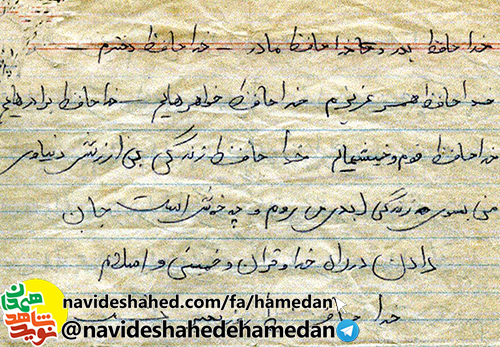 خدا حافظ پدر و خدا حافظ مادر - خدا حافظ دخترم -
خدا حافظ همسر عزیزم خدا حافظ خواهرهایم - خدا حافظ برادرهایم
خدا حافظ قوم و خویشهایم خدا حافظ زندگی بی ارزش دنیاوی
من بسوی زندگی ابدی می روم و چه خوش است جان
دادن در راه خدا و قرآن و خمینی و اسلام
خدا
navideshahed.com/fa/hamedan
@navideshahedehamedan
نوید شاهد همدان